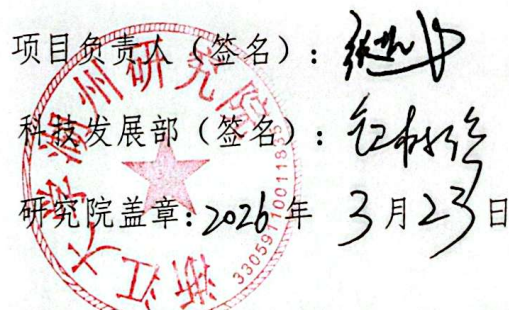 项目负责人（签名）：
科技发展部（签名）：
研究院盖章：2026年 3月23日
浙江大学湖州研究院
33059110011835